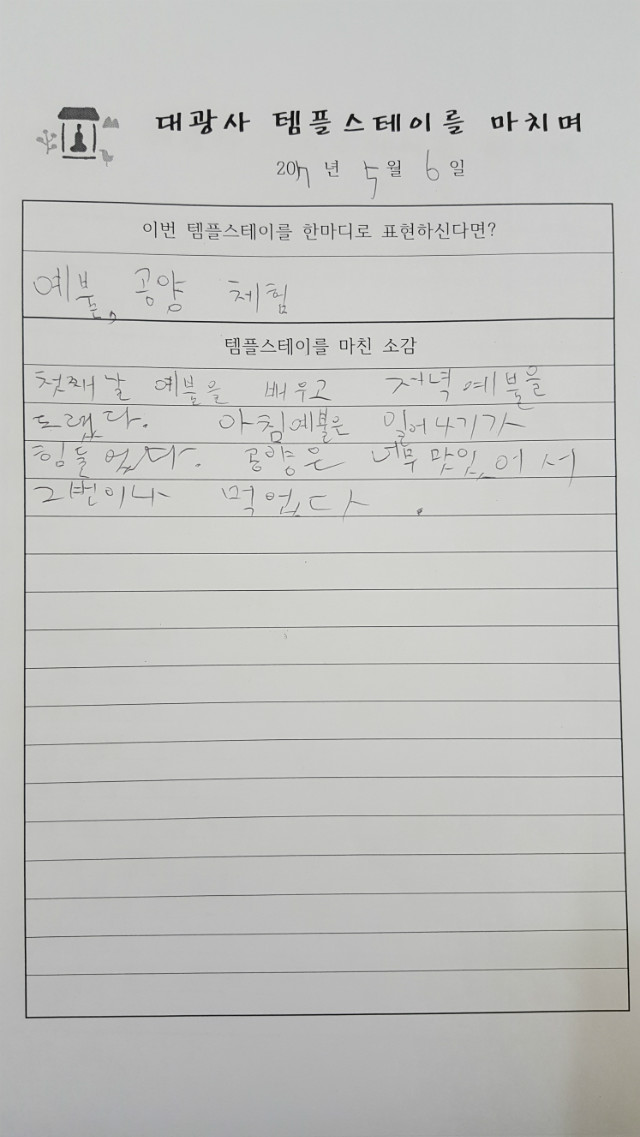 대광사 템플스테이를 마치며
2017 년 5 월 6 일
이번 템플스테이를 한마디로 표현하신다면?
예불, 공양 체험
템플스테이를 마친 소감
첫째날 예불을 배우고 저녁예불을
드렸다. 아침예불은 일어나기가
힘들었다. 공양은 너무 맛있어서
2번이나 먹었다.